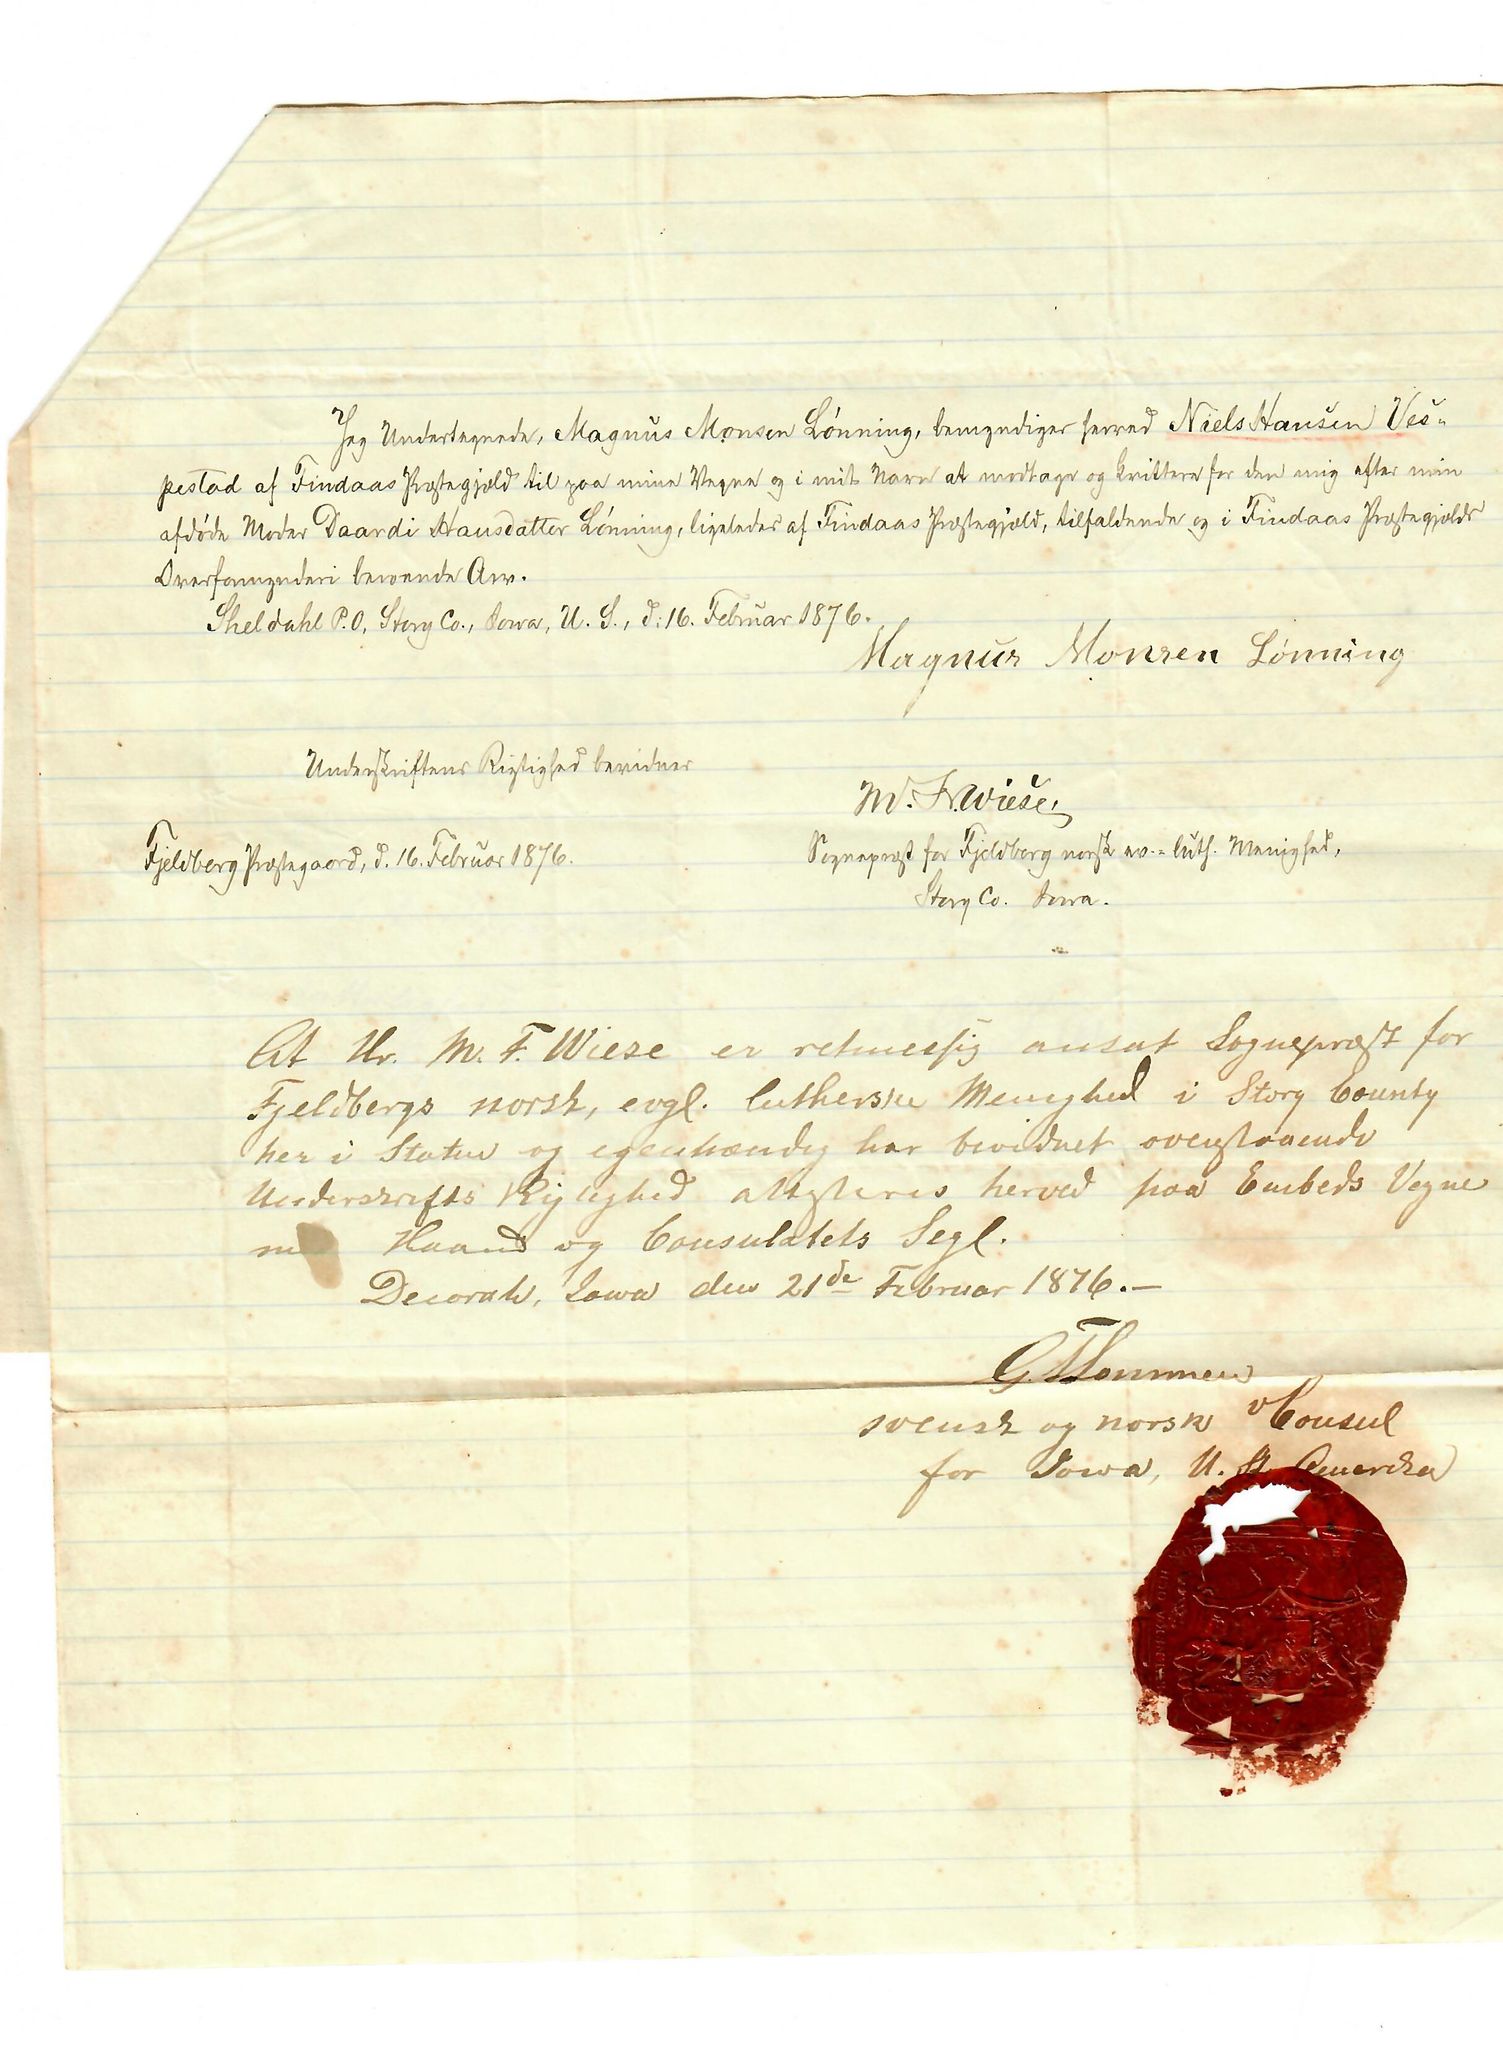 Jeg Undertegnede, Magnus Monsen Lönning, bemyndiger herved Niels Hansen Ves-
pestad af Findaas Præstegjæld til paa mine Vegne og i mit Navn at modtage og kvittere for den mig efter min
afdöde Moder Daardi Hansdatter Lönning, ligeledes af Findaas Præstegjæld, tilfaldende og i Findaas Præstegjælds
Overformynderi beroende Arv.
Sheldahl P.O, Story Co., Iowa, U. S., d: 16. Februar 1876.
Magnus Monsen Lönning
Underskriftens Rigtighed bevidner
M. F. Wiese,
Fjeldberg Præstegaard, d. 16. Februar 1876.
Sognepræst for Fjeldberg norsk ev.-luth. Menighed,
Story Co. Iowa.
At Hr. M. F. Wiese er retmessig ansat Sognepræst for
Fjeldbergs norsk, evgl. lutherske Menighed i Story County
her i Staten og egenhændig har bevidnet ovenstaaende
Underskrifts Rigtighed attesteres herved paa Embeds Vegne
Haand og Consulatets Segl.
Decorah, Iowa den 21de Februar 1876.—
G. Thommen
svensk og norsk vConsul
for Iowa, U. St. Amerika